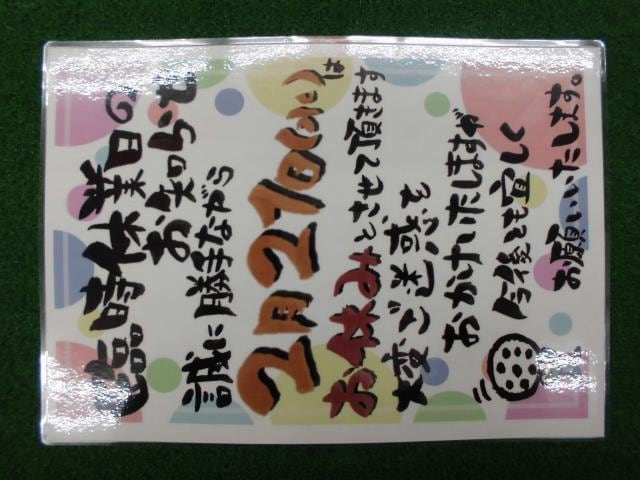 臨時休業日の
お知らせ
誠に勝手ながら
2月21日(水)は
お休みとさせて頂きます
大変ご迷惑を
おかけいたしますが
今後とも宜しく
お願いいたします。